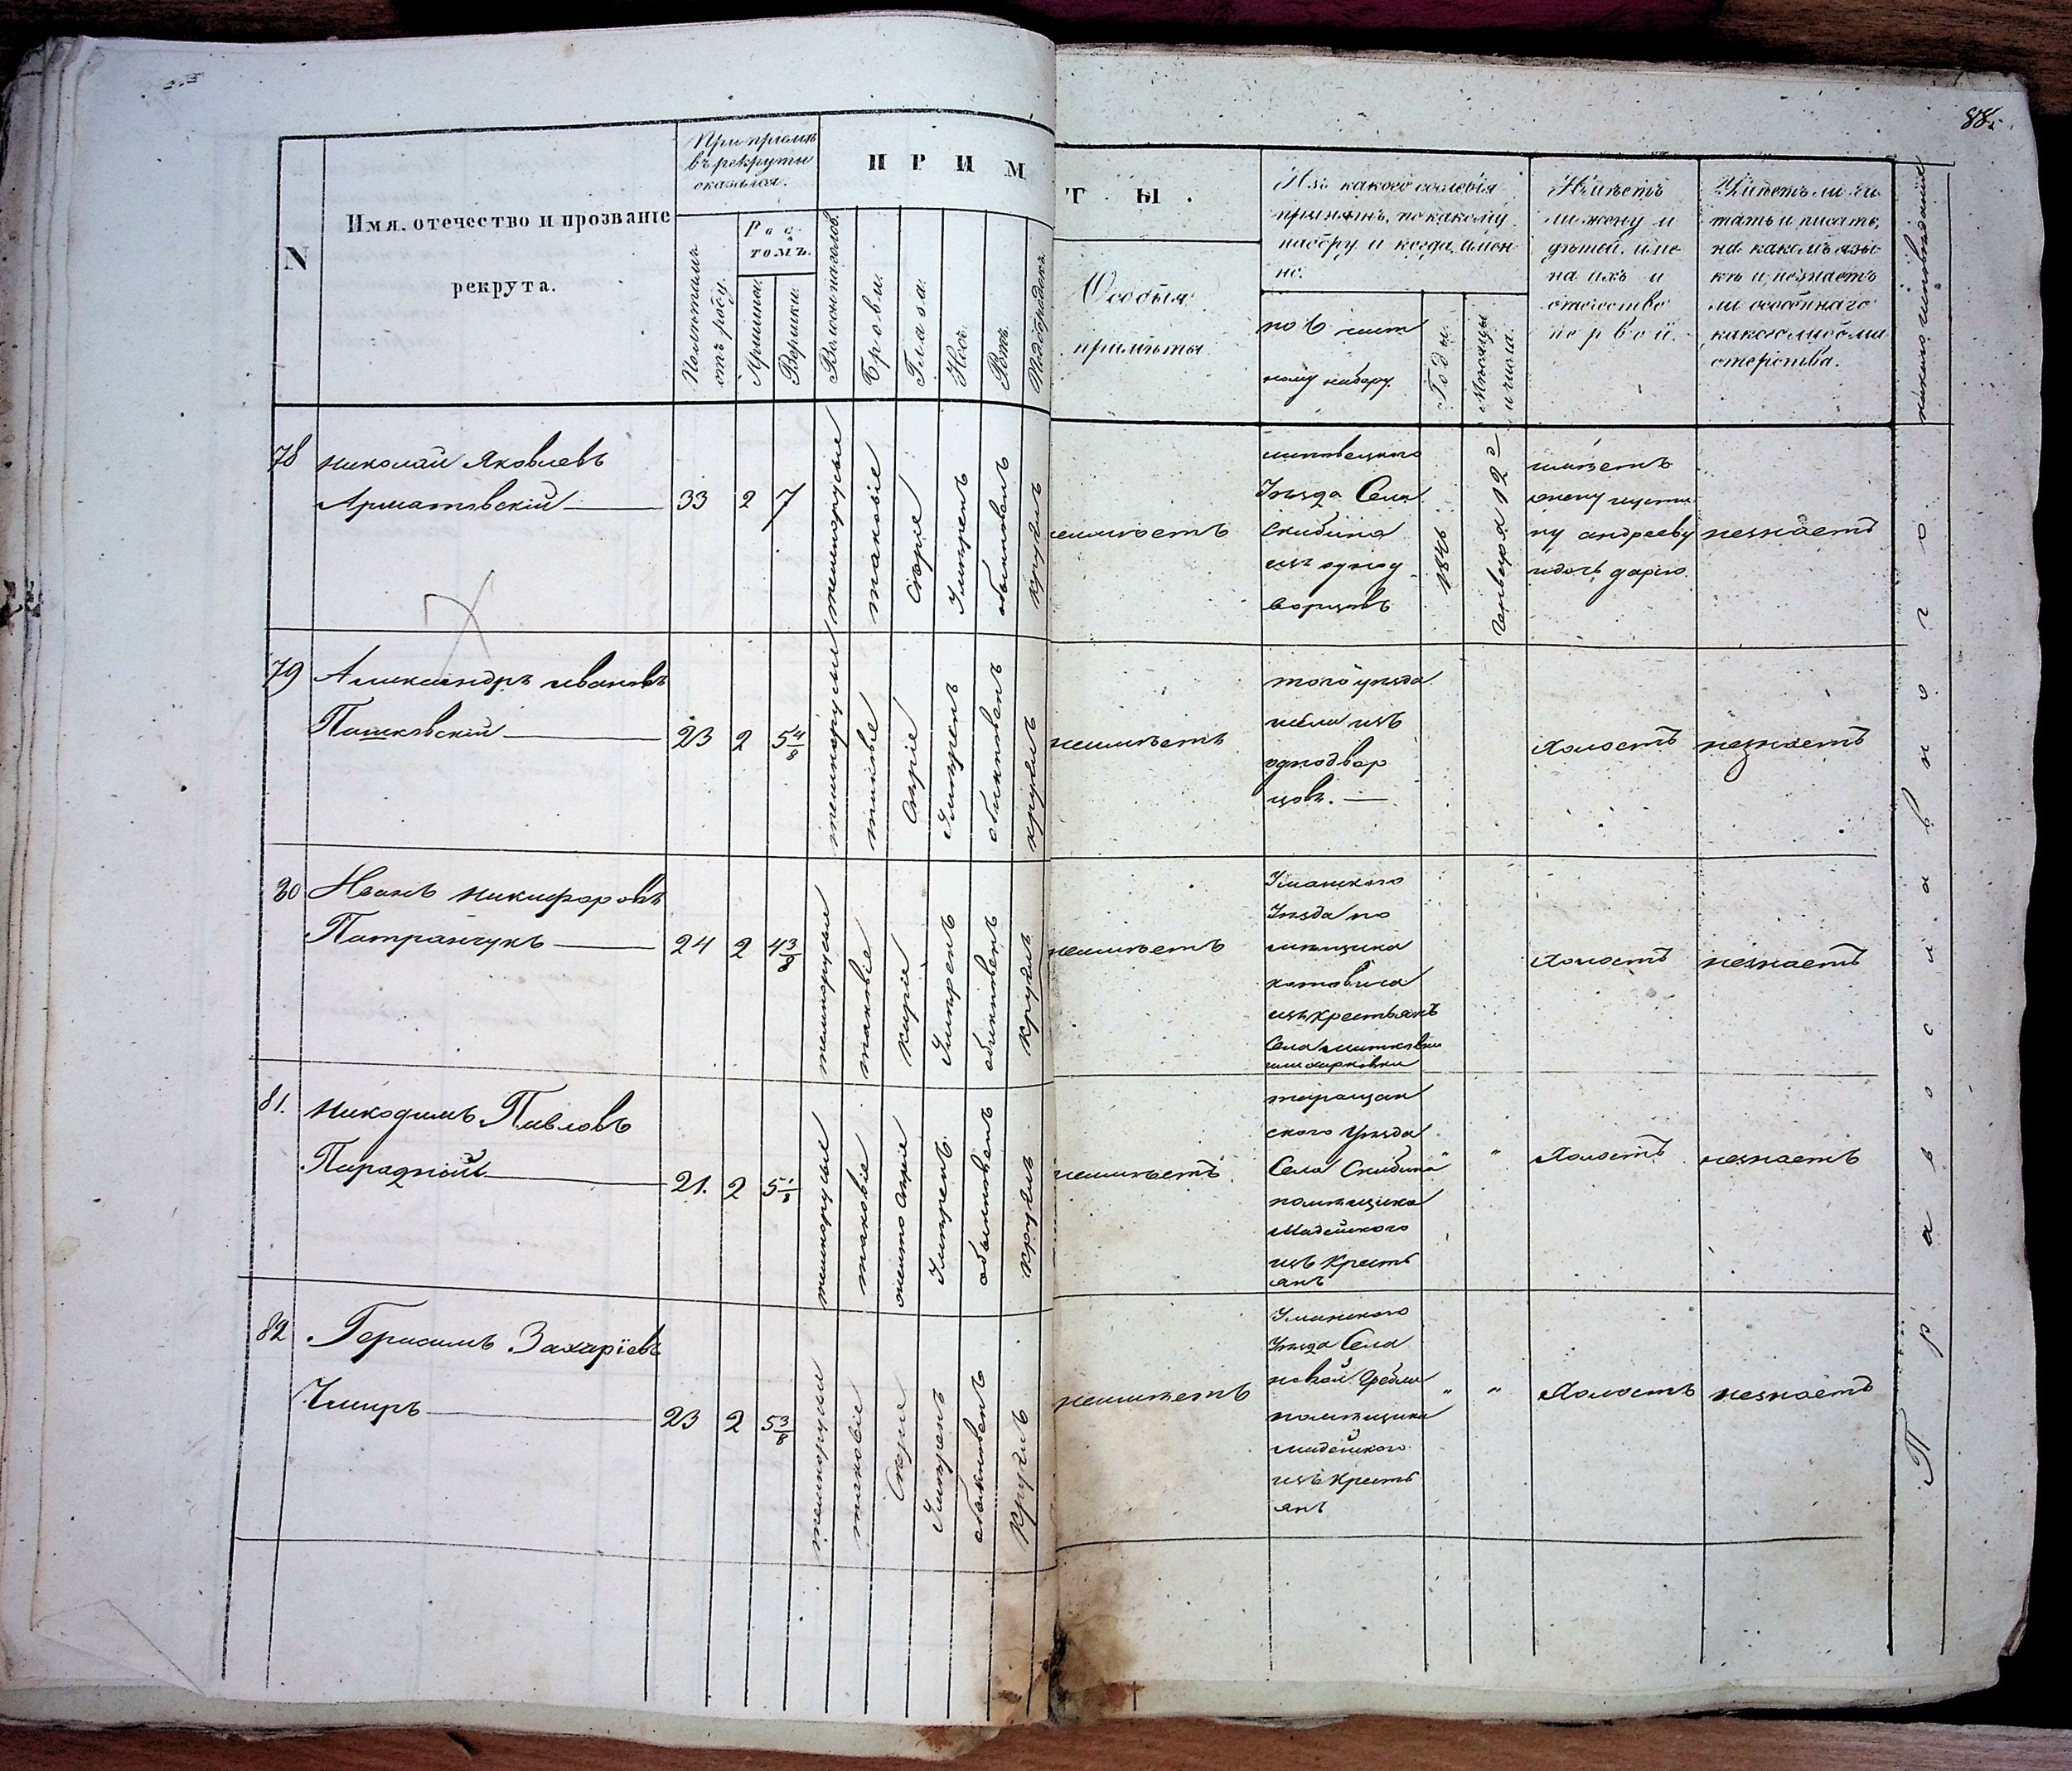 88.
N
Имя, отечество и прозваніе
рекрута.
При пріемѣ
въ рекруты
оказался.
Полѣтамъ
отъ роду.
Рос
томъ.
Аршины.
Вершки.
ПРИМ
ТЫ.
Волосы на голов.
Брови.
Глаза.
Носъ.
Ротъ.
Подбородокъ.
Особыя
примѣты
Изъ какого сословія
принятъ, по какому
набору и когда имен
но.
по 6 част
ному набору.
Годы.
Мѣсяцы
и числа.
Имѣетъ
ли жену и
дѣтей, име
на ихъ и
отчество
первой.
Умѣетъ ли чи
тать и писать,
на какомъ язы
кѣ и незнаетъ
ли особеннаго
какого либо ма
стерства.
какого исповѣданія
78
Николай Яковлевъ
Арматовскій
33
2
7
темнорусые
таковіе
Сѣріе
Умѣренъ
обыкновенъ
круглъ
неимѣетъ
Уѣзда Села
Скибина
изъ однод
ворцовъ
1846
Генваря 12 г
имѣетъ
жену иусти
ну андрееву
идочь дарію
незнаетъ
79
Александръ ивановъ
Пашковскій
23
2
5 4/8
темнорусые
таковые
Сѣріе
Умѣренъ
обыкновенъ
круглъ
неимѣетъ
того уѣзда
исела изъ
однодвор
цовъ.
Холостъ
незнаетъ
80
Иванъ никифоровъ
Патранчукъ
24
2
4 3/8
темнорусые
таковіе
каріе
Умѣренъ
обыкновенъ
круглъ
неимѣетъ
Уманского
Уѣзда по
мѣщика
изъ крестьянъ
Села
Холостъ
незнаетъ
81.
Никодимъ Павловъ
Парадной
21.
2
5 1/8
темнорусые
таковіе
Умѣренъ
обыкновенъ
круглъ
неимѣетъ
таращан
ского Уѣзда
Села Скибина
помѣщика
Мадейского
изъ Кресть
янъ
"
"
Холостъ
незнаетъ
82
Герасимъ Захаріевъ
Чмиръ
23
2
5 3/8
темнорусые
таковіе
Сѣріе
Умѣренъ
обыкновенъ
круглъ
неимѣетъ
Уманского
Уѣзда Села
новой Гребли
помѣщика
мадейского
изъ Кресть
янъ
"
"
Холостъ
незнаетъ
Православного